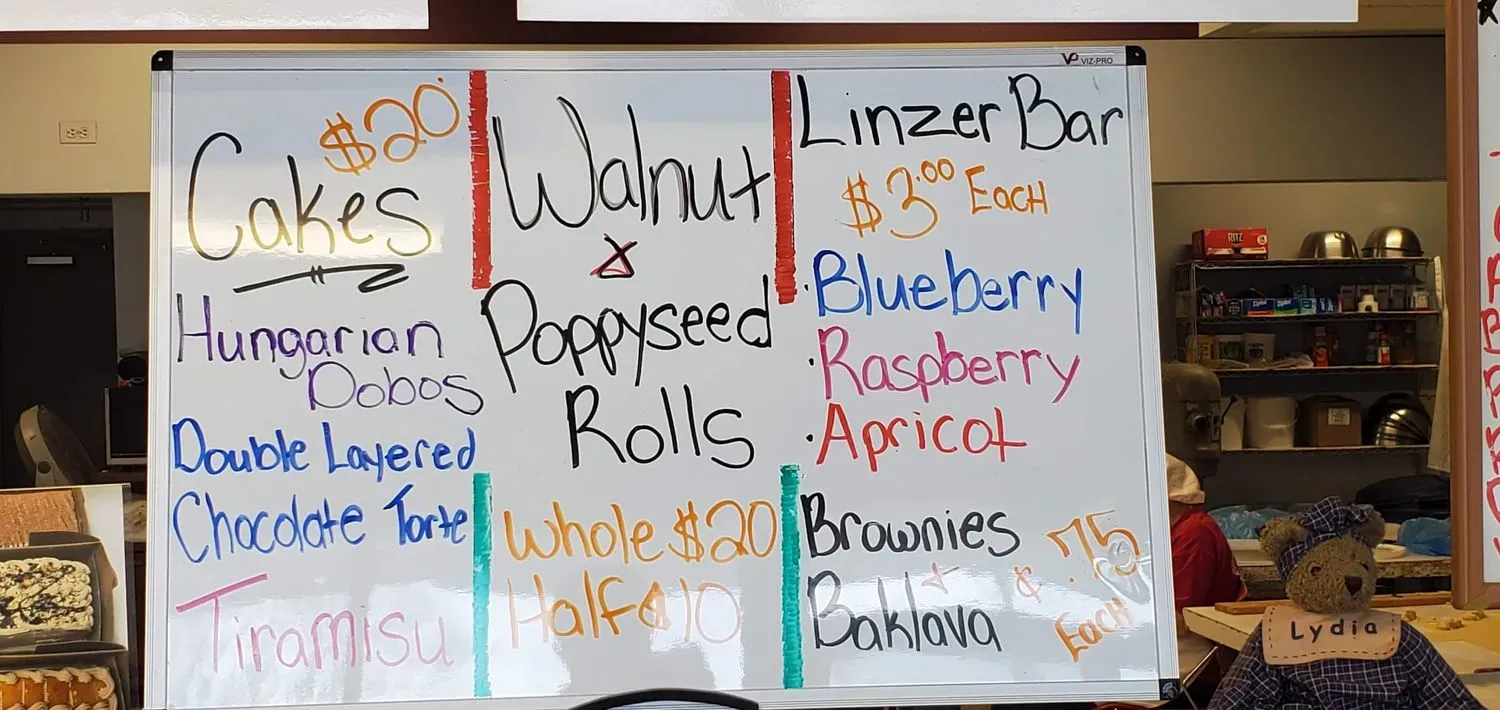 VP VIZ-PRO
$20
Cakes
Hungarian
Dobos
Double Layered
Chocolate Torte
Tiramisu
Walnut
&
Poppyseed
Rolls
Whole $20
Half $10
Linzer Bar
$3.00 Each
·Blueberry
·Raspberry
·Apricot
Brownies
+
Baklava
$.75
Each
RITZ
Lydia